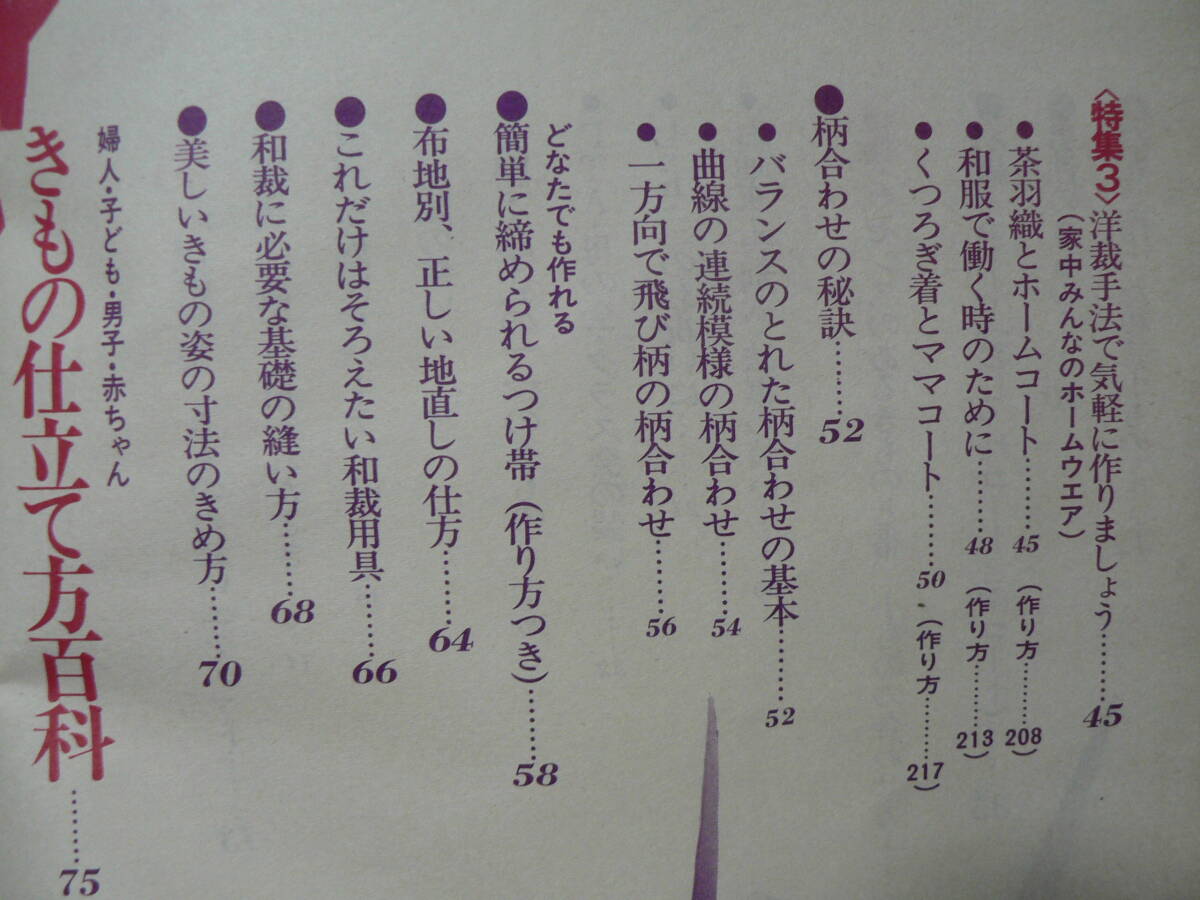 〈特集3〉洋裁手法で気軽に作りましょう………45
（家中みんなのホームウエア）
●茶羽織とホームコート………45（作り方………208）
●和服で働く時のために………48（作り方………213）
●くつろぎ着とママコート………50（作り方………217）
●柄合わせの秘訣………52
●バランスのとれた柄合わせの基本………52
●曲線の連続模様の柄合わせ………54
●一方向で飛び柄の柄合わせ………56
どなたでも作れる
●簡単に締められるつけ帯（作り方つき）………58
●布地別、正しい地直しの仕方………64
●これだけはそろえたい和裁用具………66
●和裁に必要な基礎の縫い方………68
●美しいきもの姿の寸法のきめ方………70
婦人・子ども・男子・赤ちゃん
きもの仕立て方百科………75